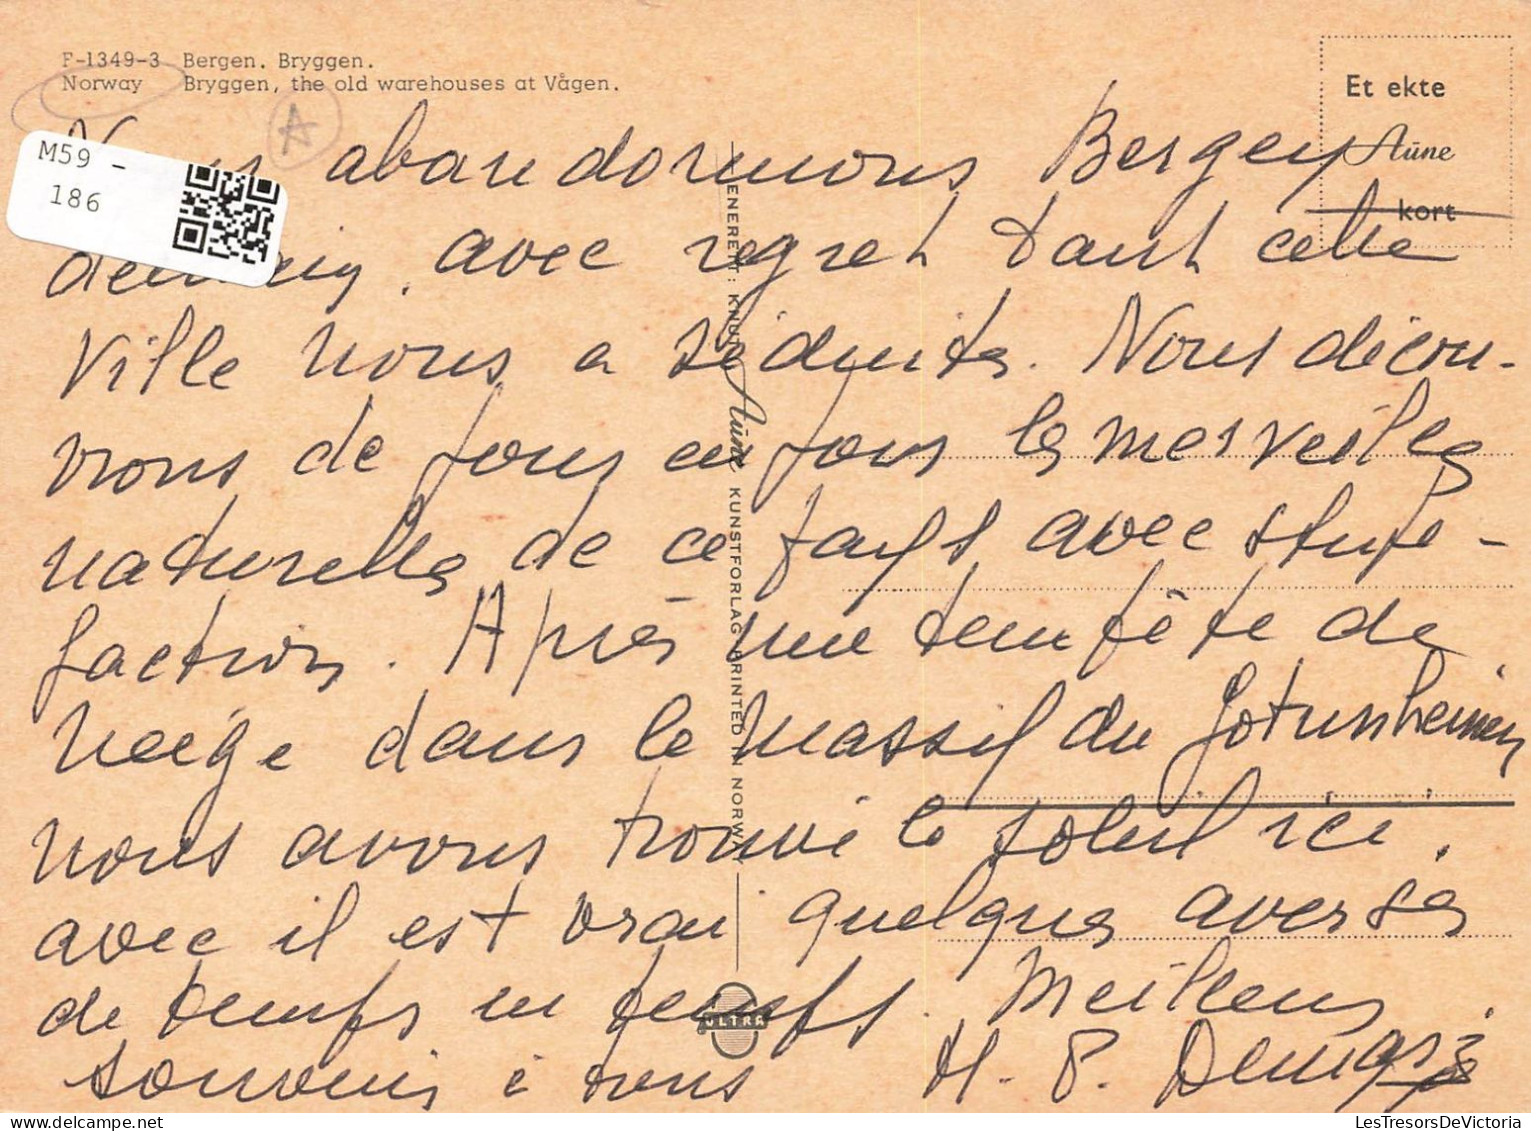 F-1349-3 Bergen. Bryggen.
Norway Bryggen, the old warehouses at Vågen.
Et ekte
Aune
kort
M59 -
186
abandonnons Bergen
avec regret tant cette
ville nous a séduits. Nous décou-
vrons de jour en jour les merveilles
naturelles de ce pays avec stupé-
faction. Après une tempête de
neige dans le massif du Jotunheimen
nous avons trouvé le soleil ici,
avec il est vrai quelques averses
de temps en temps. Meilleurs
souvenirs à tous
H. P.
ENERETT: KNUT Aune KUNSTFORLAG PRINTED IN NORWAY
ULTRA
LesTresorsDeVictoria.com